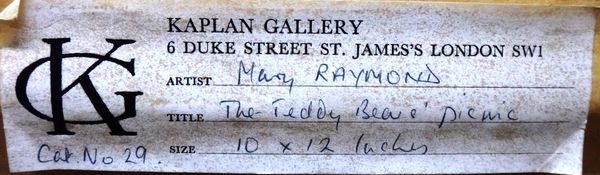 KAPLAN GALLERY
6 DUKE STREET ST. JAMES'S LONDON SW1
ARTIST Mary RAYMOND
TITLE The Teddy Bears' picnic
SIZE 10 x 12 Inches
KG
Cat. No 29.